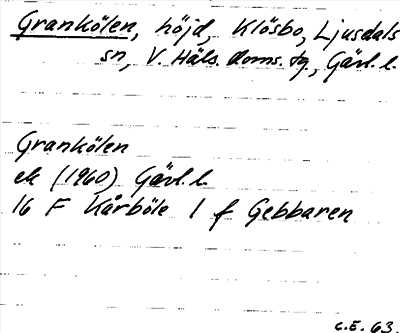 Grankölen, höjd, Klösbo, Ljusdals
sn, V. Häls. doms. tg., Gävl. l.
Grankölen
ek (1960) Gävl. l.
16 F Kårböle 1 f Gebbaren
C.E. 63.